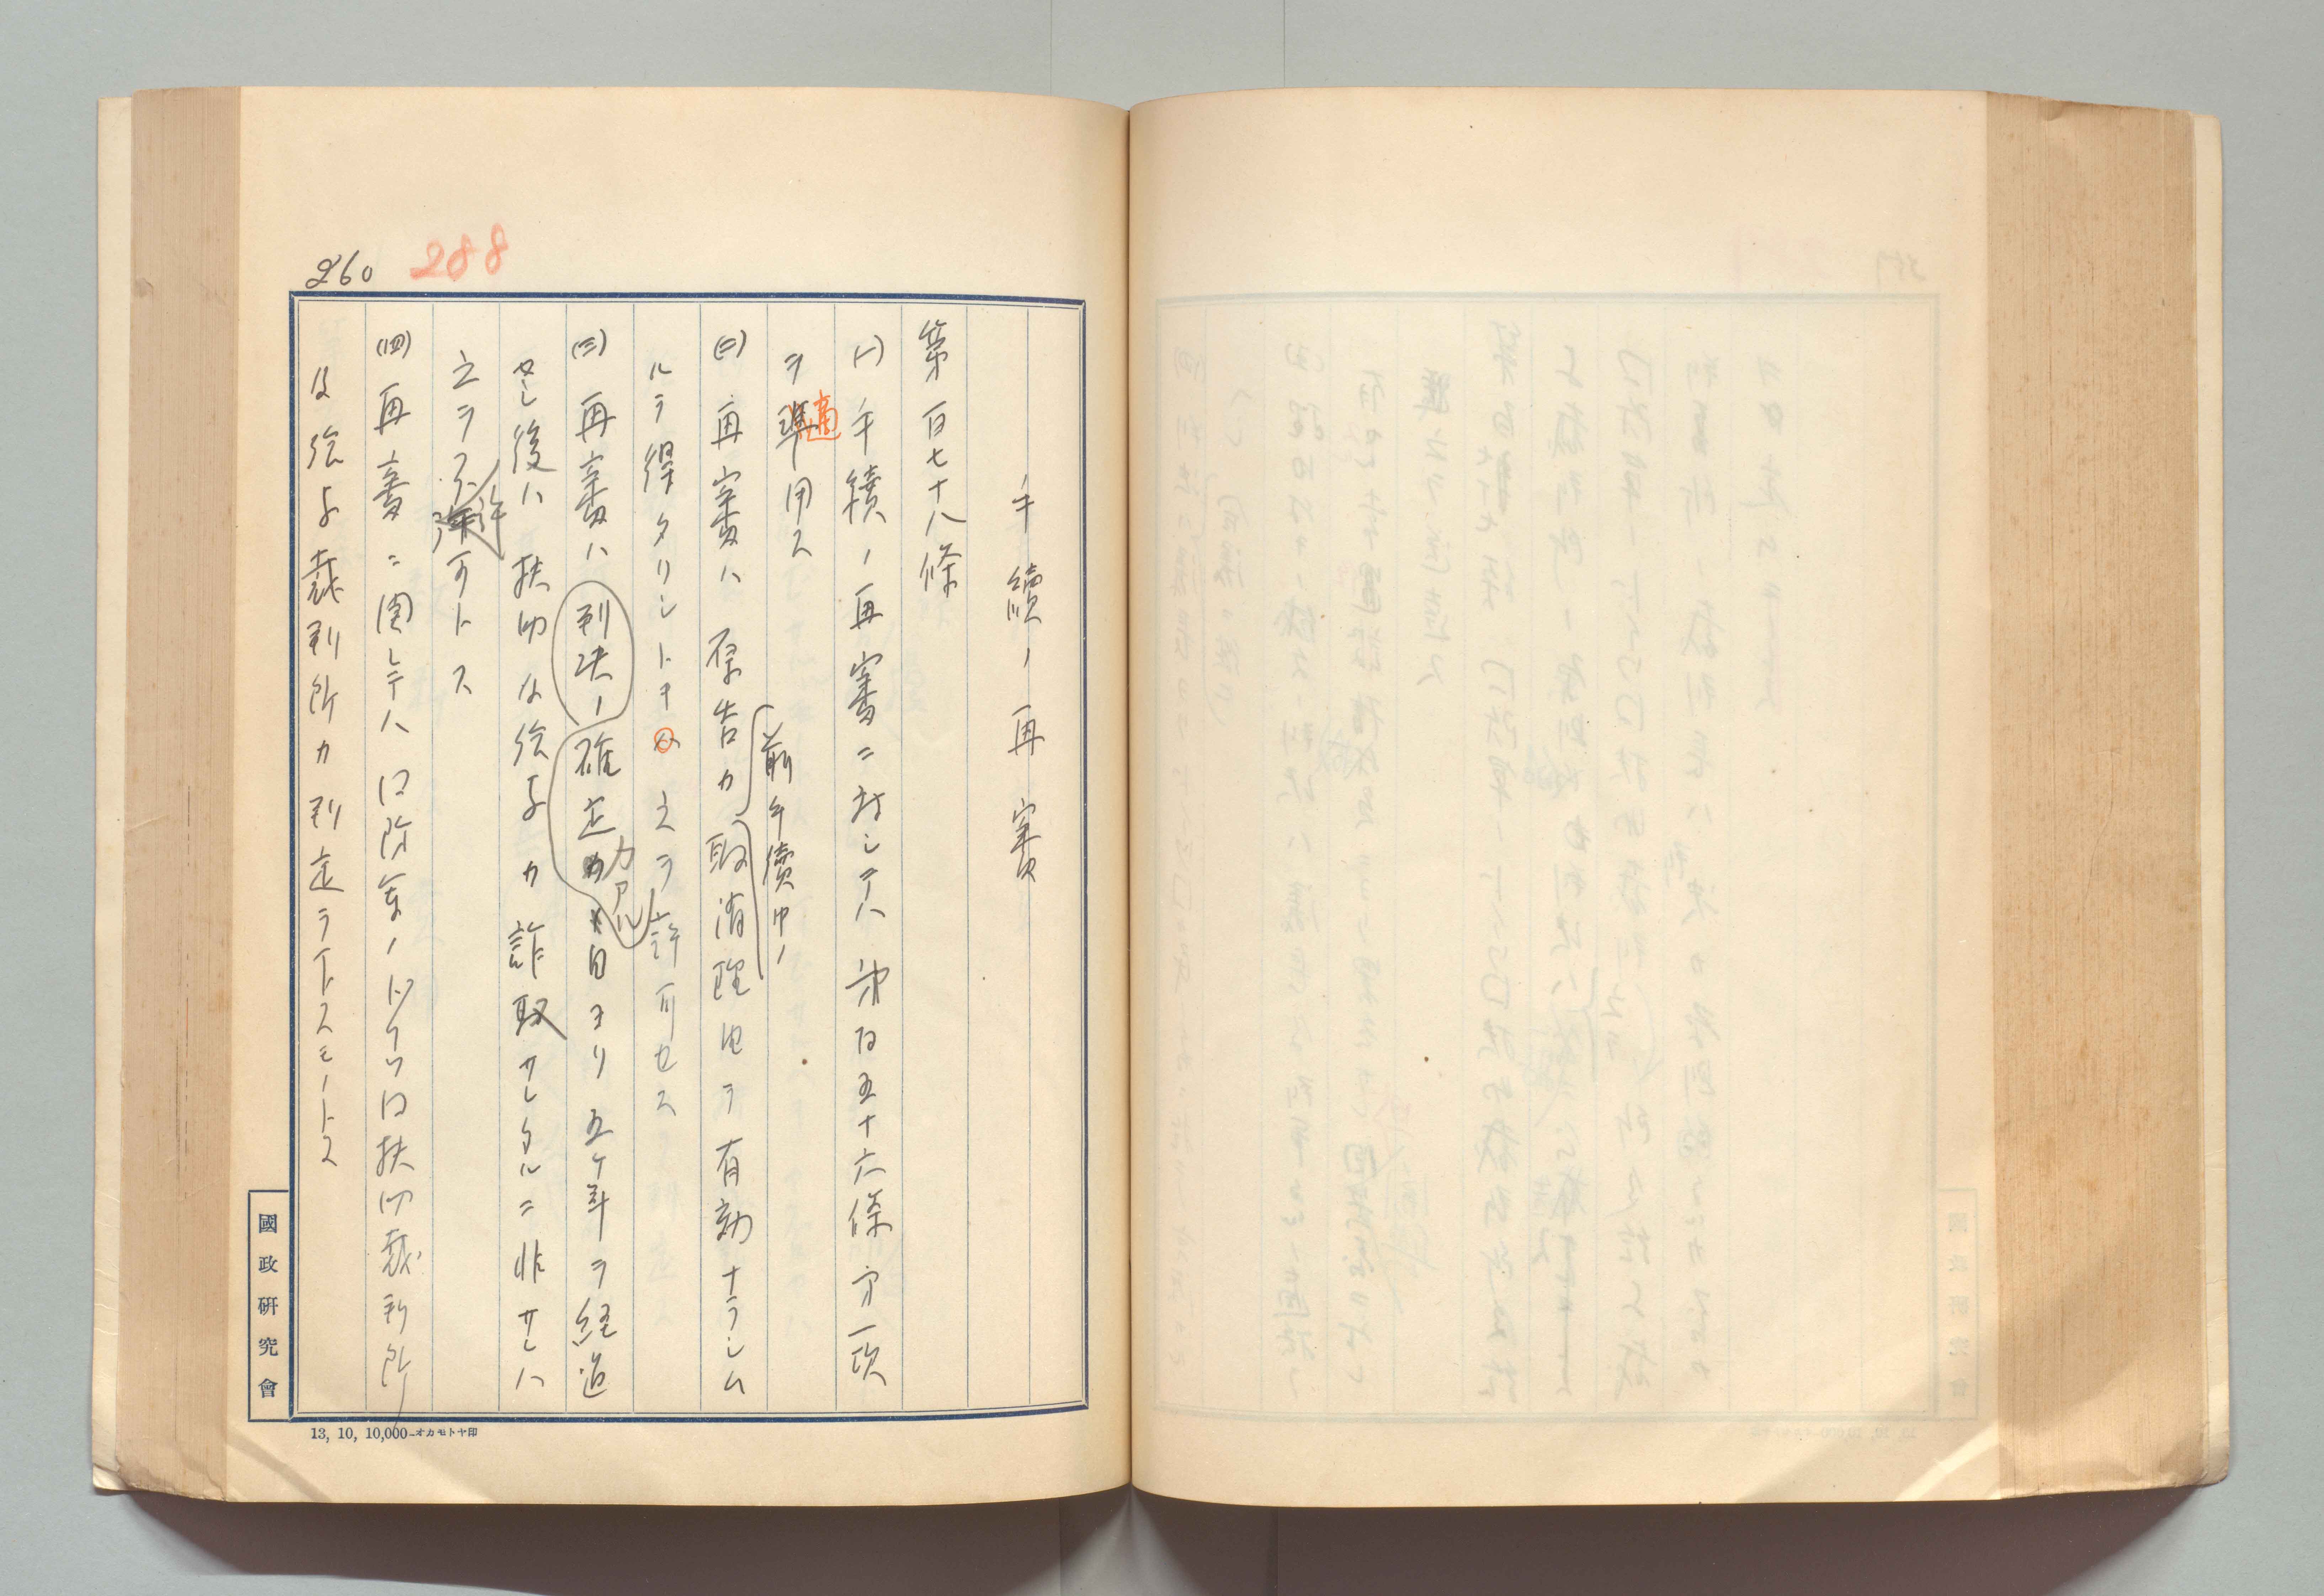 260
288
手續ノ再審
第百七十八條
(一) 手續ノ再審ニ対シテハ第百五十六條第一項
ヲ準適用ス
(二) 再審ハ原告カ前手續中ノ取消理由ヲ有効ナラシム
ルヲ得タリシトキハ之ヲ許可セス
(三) 再審ハ判決ノ確定カアル日ヨリ五ケ年ヲ経過
セシ後ハ扶助及給与カ詐取サレタルニ非サレハ
之ヲ不許可トス
(四) 再審ニ関シテハ扶助裁判所
及給与裁判所カ判定ヲ下スモノトス
國政研究會
13, 10, 10,000—オカモトヤ印